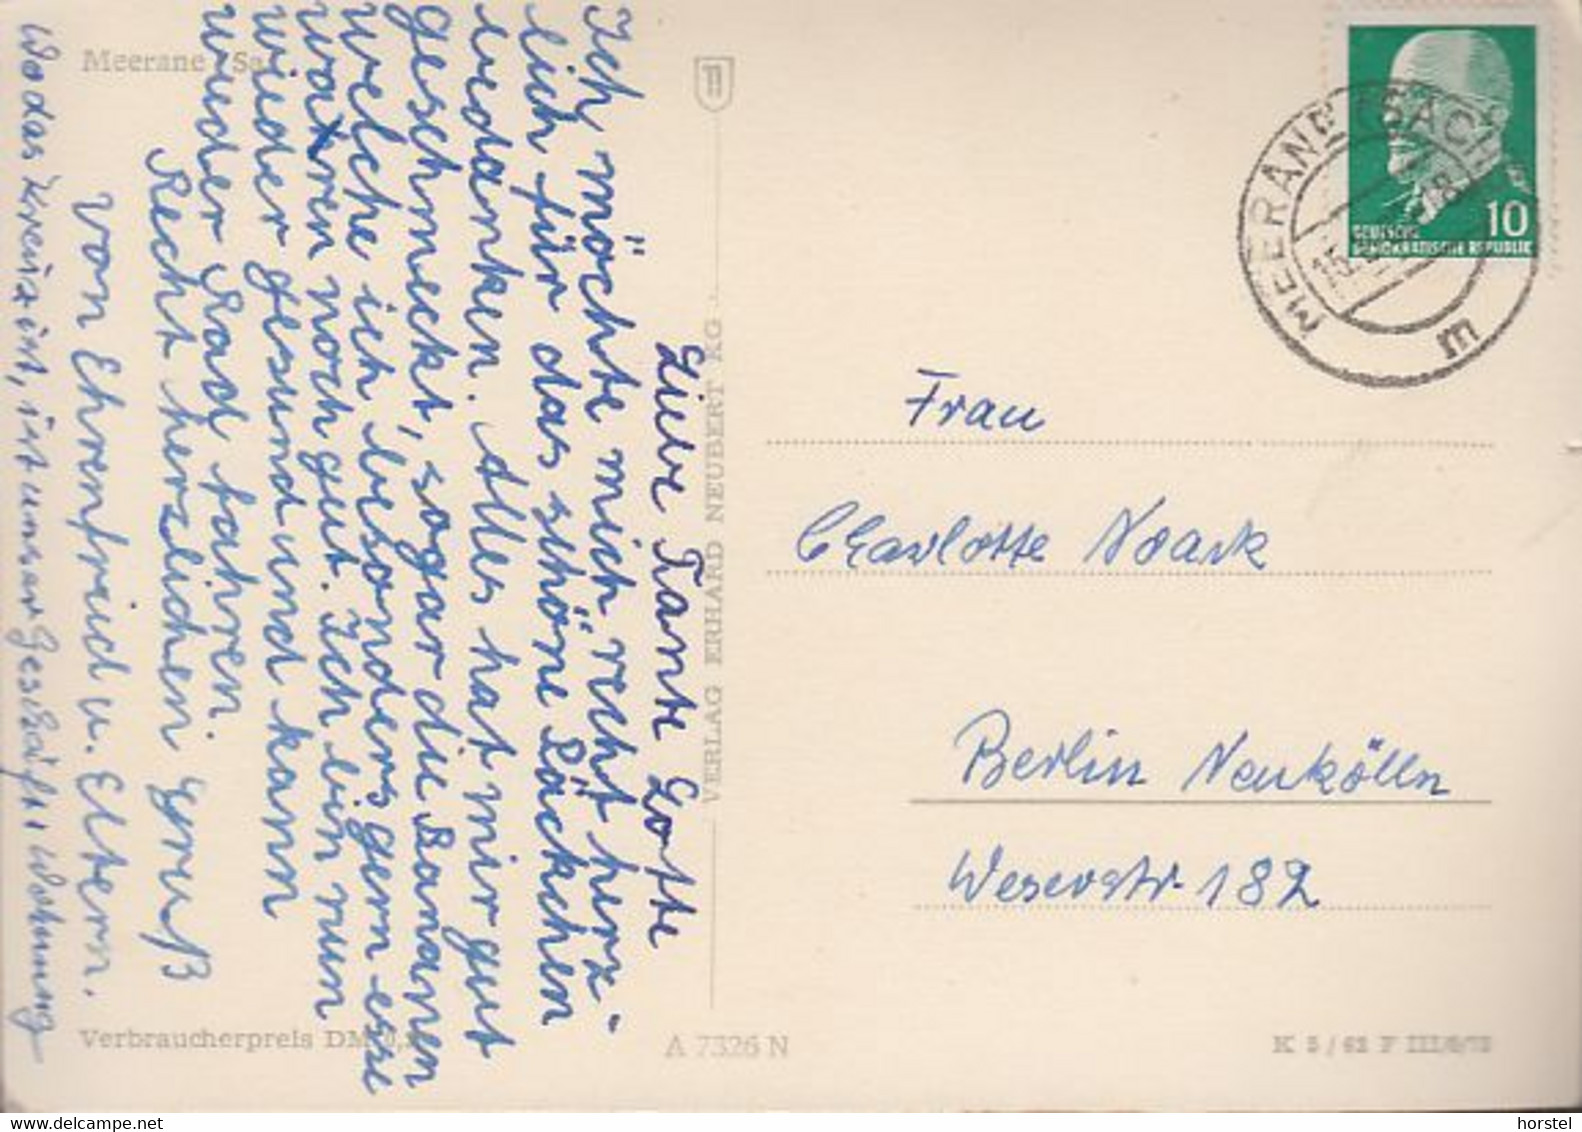 Meerane Sa.
Liebe Tante Lotte
Ich möchte mich recht herz-
lich für das schöne Päckchen
bedanken. Alles hat mir gut
geschmeckt, sogar die Bananen
welche ich besonders gern esse
waren noch gut. Ich bin nun
wieder gesund und kann
wieder Rad fahren.
Recht herzlichen Gruß
von Ehrenfried u. Eltern.
Wo das Kreuz ist, ist unser Geschäft u. Wohnung
VERLAG ERHARD NEUBERT KG
MEERANE (SACHS)
15.
18
m
10
DEUTSCHE
DEMOKRATISCHE REPUBLIK
Frau
Charlotte Noack
Berlin Neukölln
Weserstr. 182
Verbraucherpreis DM
A 7326 N
K 5/62 F III/6/
horstel
delcampe.net